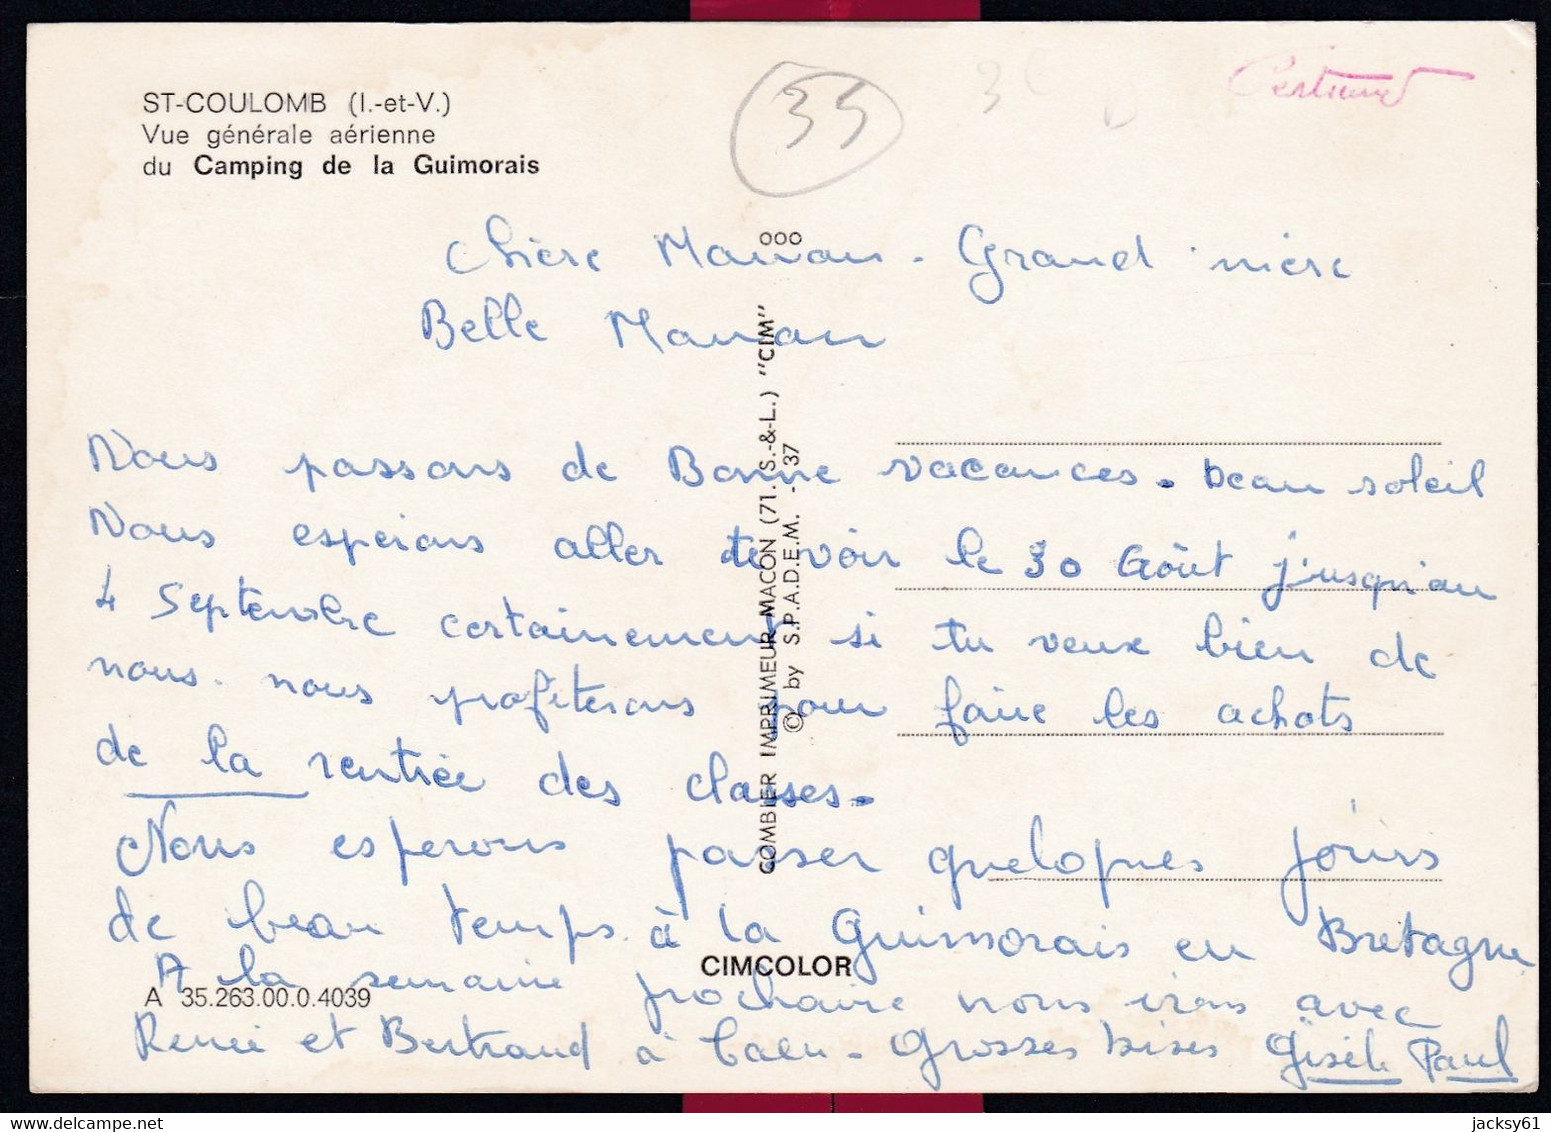 ST-COULOMB (I.-et-V.)
Vue générale aérienne
du Camping de la Guimorais
35
Bertrand
Chère Maman - Grand mère
Belle Maman
Nous passons de Bonne vacances - beau soleil
Nous esperons aller te voir le 30 Août jusqu'au
4 Septembre certainement si tu veux bien de
nous. nous profiterons pour faire les achats
de la rentrée des classes.
Nous esperons passer quelques jours
de beau temps à la Guimorais en Bretagne
A la semaine prochaine nous irons avec
Renée et Bertrand à Caen - Grosses bises Gisèle Paul
COMBIER IMPRIMEUR MACON (71. S.-&-L.) "CIM"
© by S.P.A.D.E.M. - 37
ooo
CIMCOLOR
A 35.263.00.0.4039
jacksy61